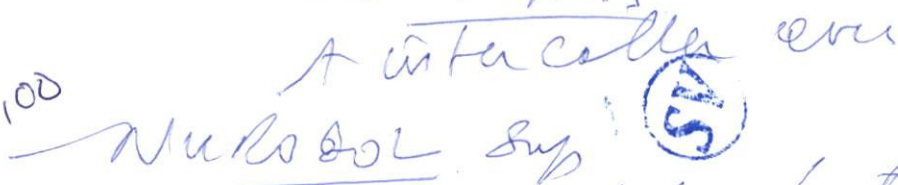 A intercaller avec
,00
NUROBOL Sup
SV